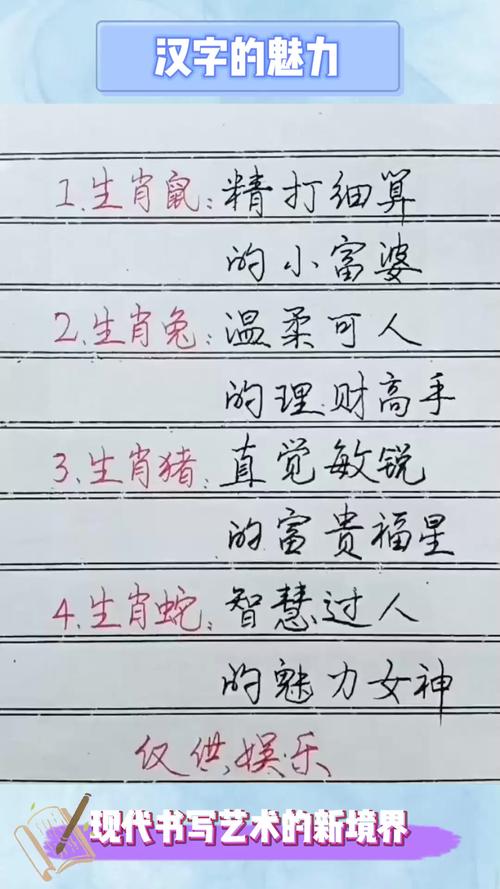 汉字的魅力
1.生肖鼠:精打细算
的小富婆
2.生肖兔:温柔可人
的理财高手
3.生肖猪:直觉敏锐
的富贵福星
4.生肖蛇:智慧过人
的魅力女神
仅供娱乐
现代书写艺术的新境界